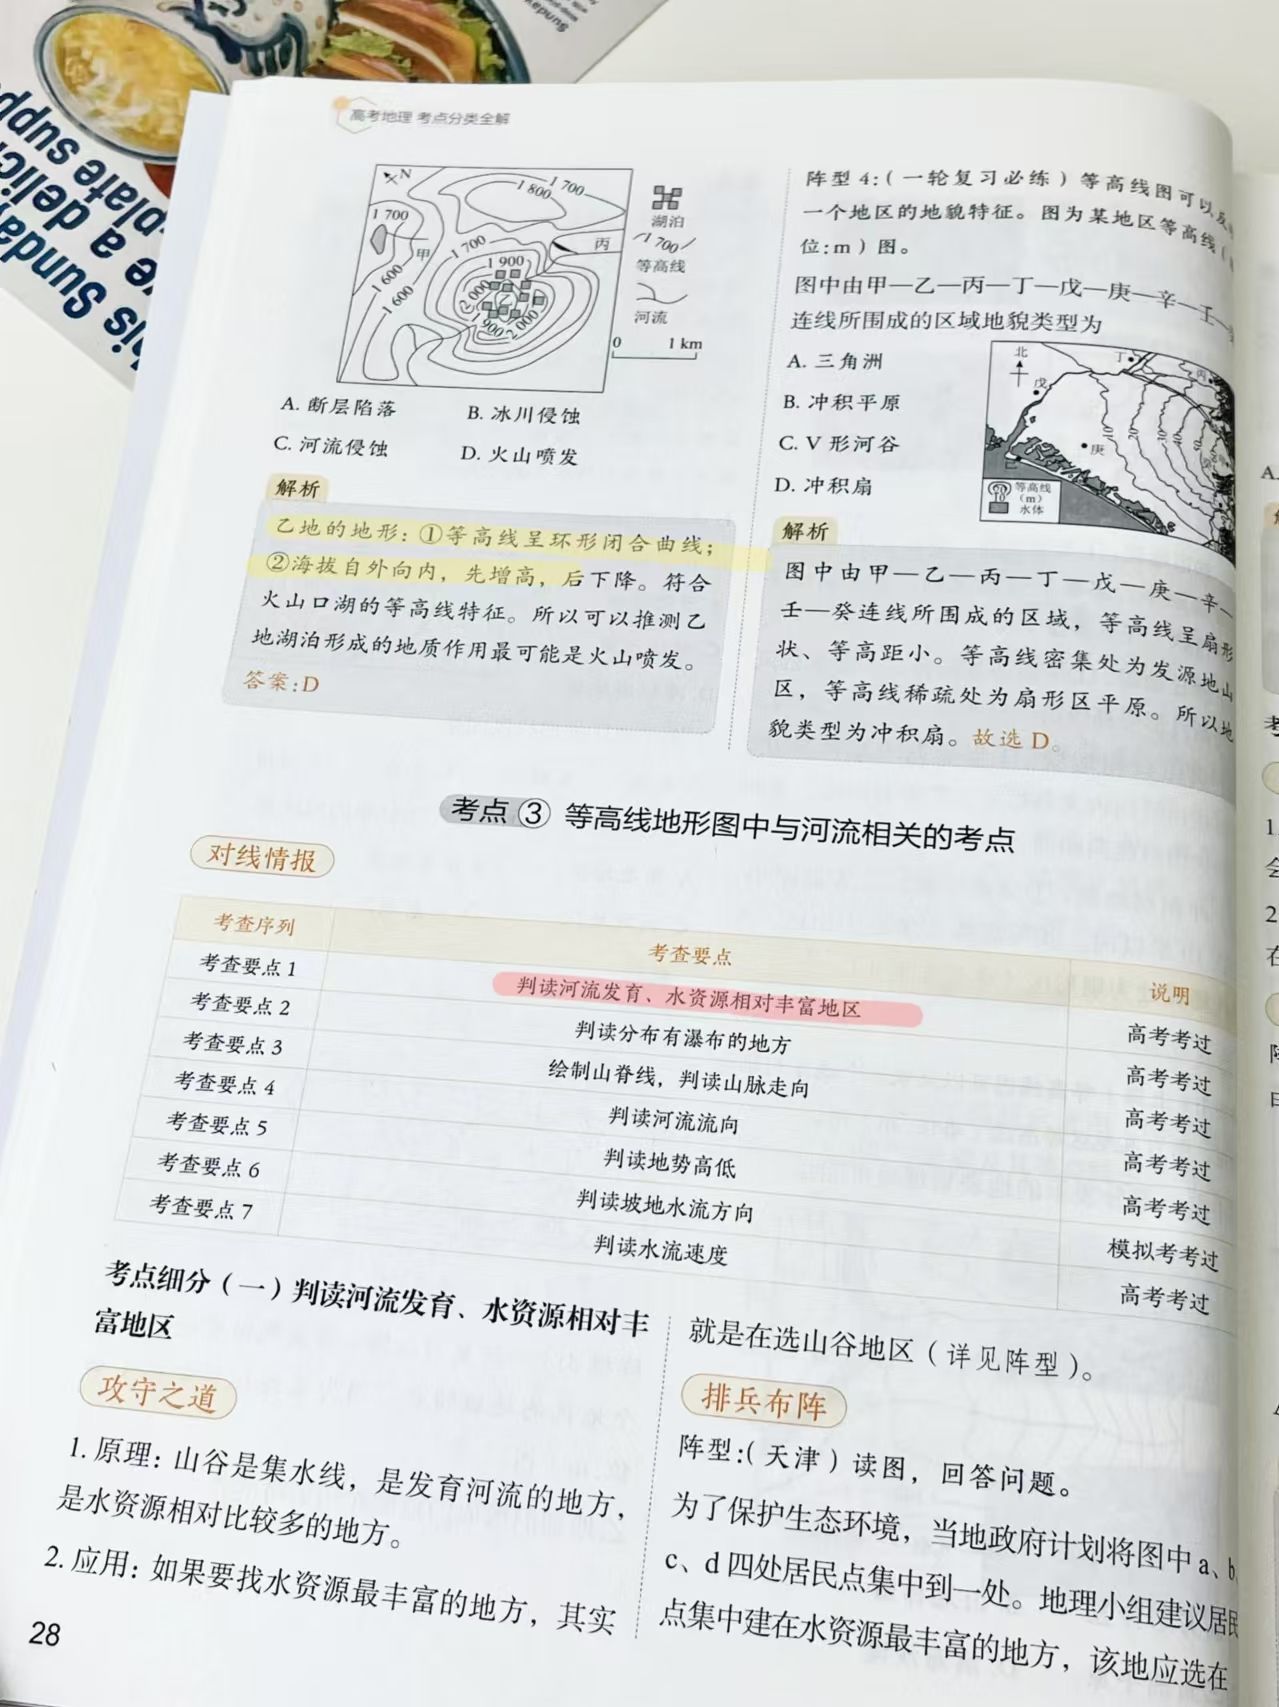 高考地理 考点分类全解
N
1 800
1 700
1 700
甲
1 700
丙
1 600
1 600
1 900
2 000
乙
1 900
2 000
湖泊
1 700
等高线
河流
0 1 km
A. 断层陷落 B. 冰川侵蚀
C. 河流侵蚀 D. 火山喷发
解析
乙地的地形：①等高线呈环形闭合曲线；
②海拔自外向内，先增高，后下降。符合
火山口湖的等高线特征。所以可以推测乙
地湖泊形成的地质作用最可能是火山喷发。
答案：D
阵型 4：（一轮复习必练）等高线图可以
一个地区的地貌特征。图为某地区等高线（
位：m）图。
图中由甲—乙—丙—丁—戊—庚—辛—壬—
连线所围成的区域地貌类型为
A. 三角洲
B. 冲积平原
C. V 形河谷
D. 冲积扇
北
丁
丙
戊
庚
10
20
30
40
50
10
等高线
(m)
水体
解析
图中由甲—乙—丙—丁—戊—庚—辛—
壬—癸连线所围成的区域，等高线呈扇形
状、等高距小。等高线密集处为发源地山
区，等高线稀疏处为扇形区平原。所以地
貌类型为冲积扇。故选 D。
考点③ 等高线地形图中与河流相关的考点
对线情报
考查序列 考查要点 说明
考查要点 1 判读河流发育、水资源相对丰富地区 高考考过
考查要点 2 判读分布有瀑布的地方 高考考过
考查要点 3 绘制山脊线，判读山脉走向 高考考过
考查要点 4 判读河流流向 高考考过
考查要点 5 判读地势高低 高考考过
考查要点 6 判读坡地水流方向 模拟考考过
考查要点 7 判读水流速度 高考考过
考点细分（一）判读河流发育、水资源相对丰
富地区
攻守之道
1. 原理：山谷是集水线，是发育河流的地方，
是水资源相对比较多的地方。
2. 应用：如果要找水资源最丰富的地方，其实
就是在选山谷地区（详见阵型）。
排兵布阵
阵型：（天津）读图，回答问题。
为了保护生态环境，当地政府计划将图中 a、b、
c、d 四处居民点集中到一处。地理小组建议居民
点集中建在水资源最丰富的地方，该地应选在
28